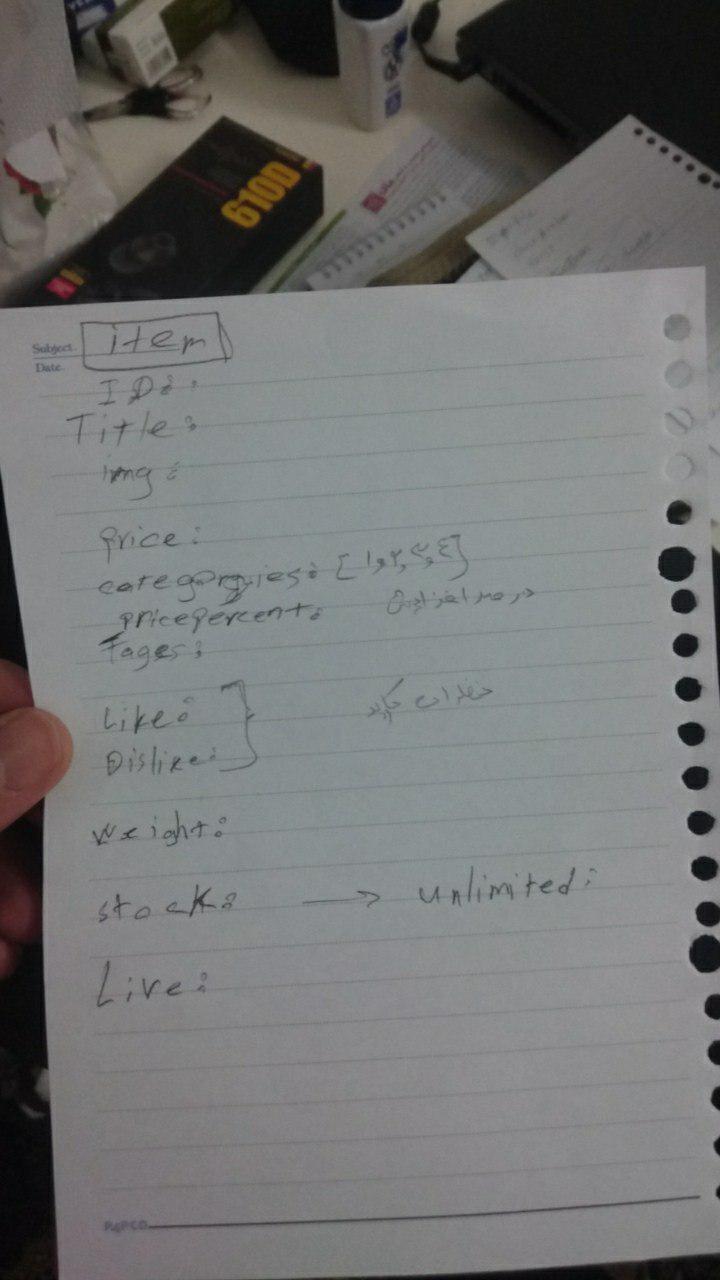 610D
Subject.
Date.
item
ID:
Title:
img:
price:
categories: [۱,۲,۳,۴]
pricepercent: درصد افزایش
Tages:
Like:
Dislike:
weight:
stock: → unlimited:
Live:
PAPCO